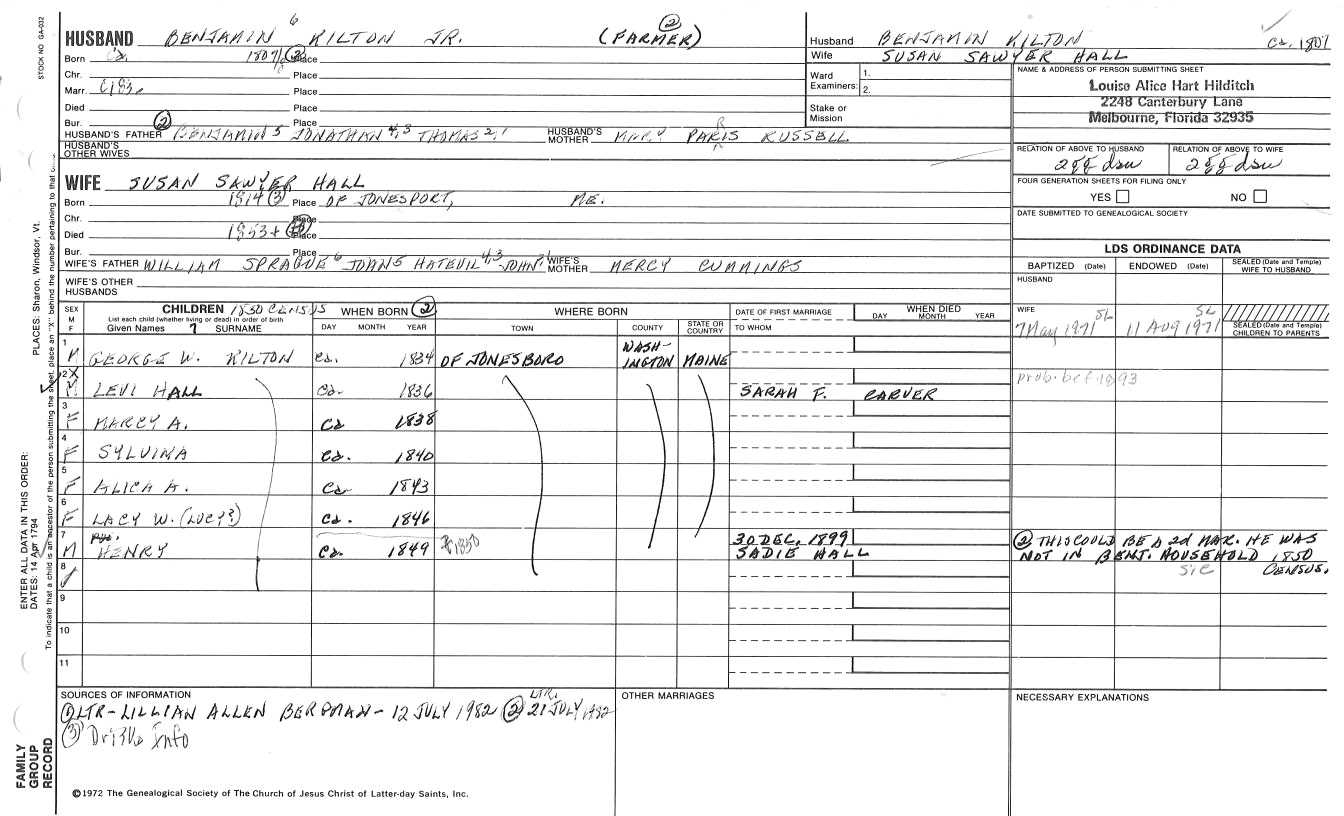 STOCK NO. GA-032
HUSBAND BENJAMIN 6 KILTON JR. (FARMER) ②
Born Ca. 1807/8 ② Place
Chr. Place
Marr. C183 Place
Died Place
Bur. Place
② HUSBAND'S FATHER BENJAMIN 5 JONATHAN 4,3 THOMAS 2,1 HUSBAND'S MOTHER MARY PARIS RUSSELL
HUSBAND'S OTHER WIVES
WIFE SUSAN SAWYER HALL
Born 1814 ③ Place OF JONESPORT, ME.
Chr. Place
Died 1853+ Place
Bur. Place
WIFE'S FATHER WILLIAM SPRAGUE 6 JOHN 5 HATEVIL 4,3 JOHN 2,1 WIFE'S MOTHER MERCY CUMMINGS
WIFE'S OTHER HUSBANDS
Husband BENJAMIN KILTON Ca. 1807
Wife SUSAN SAWYER HALL
Ward Examiners: 1.
2.
Stake or Mission
NAME & ADDRESS OF PERSON SUBMITTING SHEET
Louise Alice Hart Hilditch
2248 Canterbury Lane
Melbourne, Florida 32935
RELATION OF ABOVE TO HUSBAND RELATION OF ABOVE TO WIFE
2gg dau 2gg dau
FOUR GENERATION SHEETS FOR FILING ONLY
YES NO
DATE SUBMITTED TO GENEALOGICAL SOCIETY
LDS ORDINANCE DATA
BAPTIZED (Date) ENDOWED (Date) SEALED (Date and Temple) WIFE TO HUSBAND
HUSBAND
WIFE
7 May 1971 SL 11 Aug 1971 SL
SEALED (Date and Temple) CHILDREN TO PARENTS
SEX M F CHILDREN 1850 CENSUS WHEN BORN ② WHERE BORN DATE OF FIRST MARRIAGE WHEN DIED
List each child (whether living or dead) in order of birth
Given Names 7 SURNAME DAY MONTH YEAR TOWN COUNTY STATE OR COUNTRY TO WHOM DAY MONTH YEAR
1 M GEORGE W. KILTON Ca. 1834 OF JONESBORO WASHINGTON MAINE
2X M LEVI HALL Ca. 1836 SARAH F. CARVER prob. bef. 1893
3 F MARCY A. Ca 1838
4 F SYLVINA Ca. 1840
5 F ALICA A. Ca 1843
6 F LACY W. (LUCY?) Ca. 1846
7 M HENRY Ca. 1849 1850 30 DEC. 1899 SADIE HALL
② THIS COULD BE A 2d MAR. HE WAS
NOT IN BENJ. HOUSEHOLD 1850
sic CENSUS.
8
9
10
11
SOURCES OF INFORMATION
① LTR-LILLIAN ALLEN BERPMAN-12 JULY 1982 ② LTR. 21 JULY 1982
③ Info
OTHER MARRIAGES
NECESSARY EXPLANATIONS
©1972 The Genealogical Society of The Church of Jesus Christ of Latter-day Saints, Inc.
FAMILY GROUP RECORD
ENTER ALL DATA IN THIS ORDER:
DATES: 14 Apr 1794
PLACES: Sharon, Windsor, Vt.
To indicate that a child is an ancestor of the person submitting the sheet, place an "X" behind the number pertaining to that c